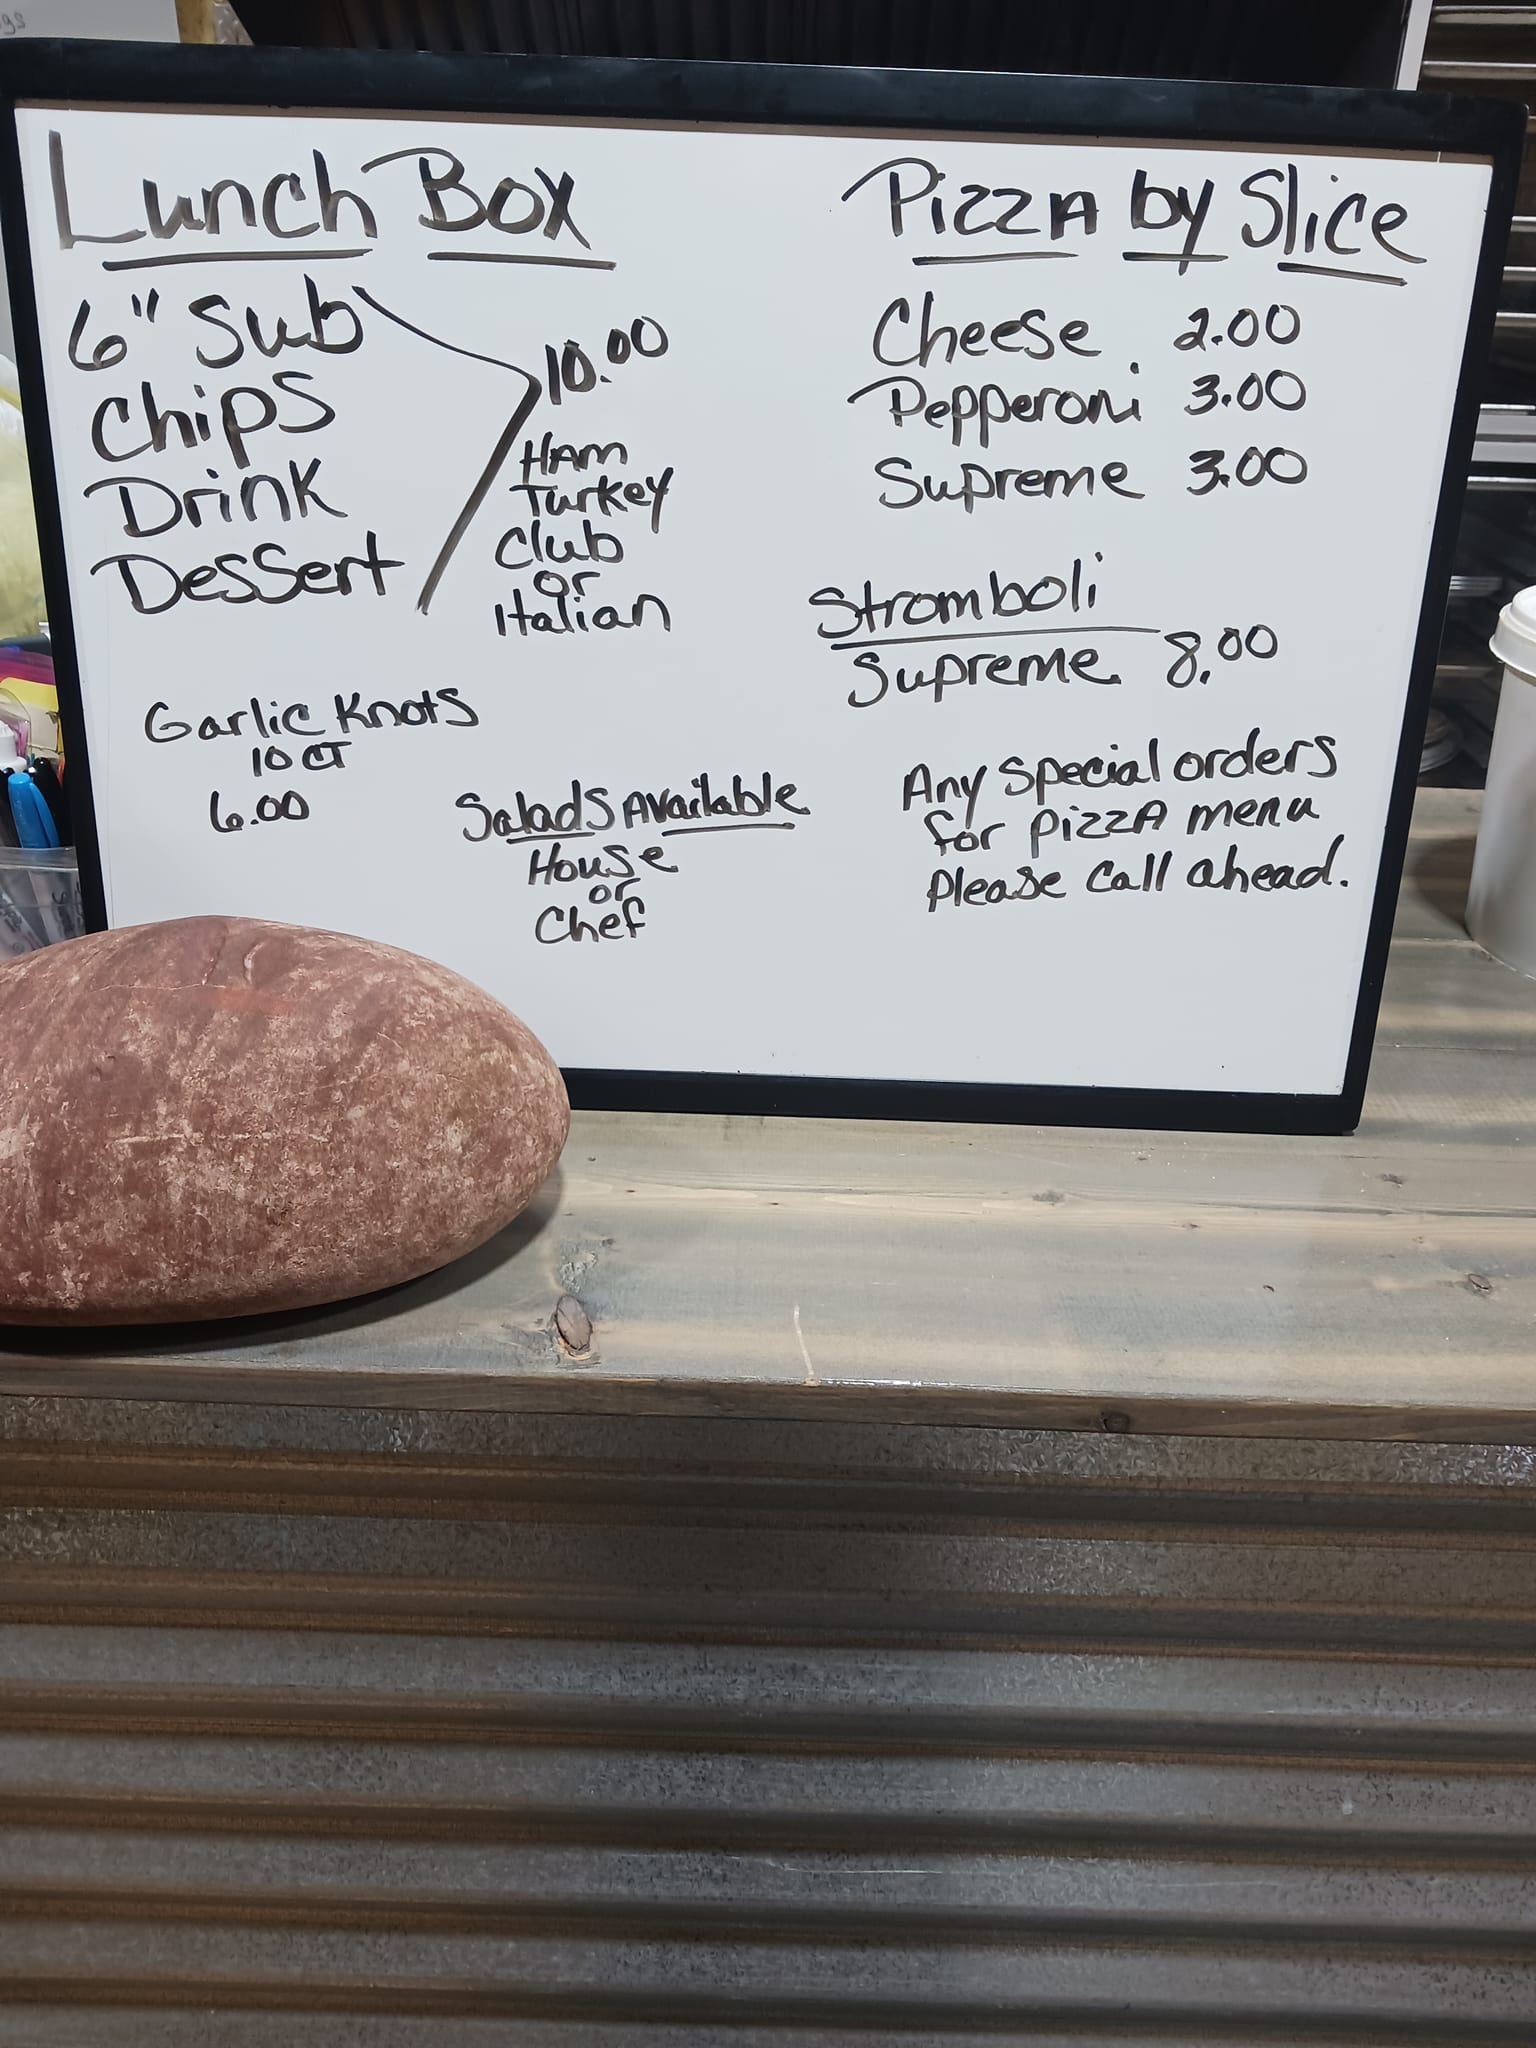 Lunch Box
6" Sub
Chips
Drink
Dessert
10.00
Ham
Turkey
Club
or
Italian
Garlic Knots
10 CT
6.00
Salads Available
House
or
Chef
Pizza by Slice
Cheese 2.00
Pepperoni 3.00
Supreme 3.00
Stromboli
Supreme 8.00
Any special orders
for pizza menu
please call ahead.